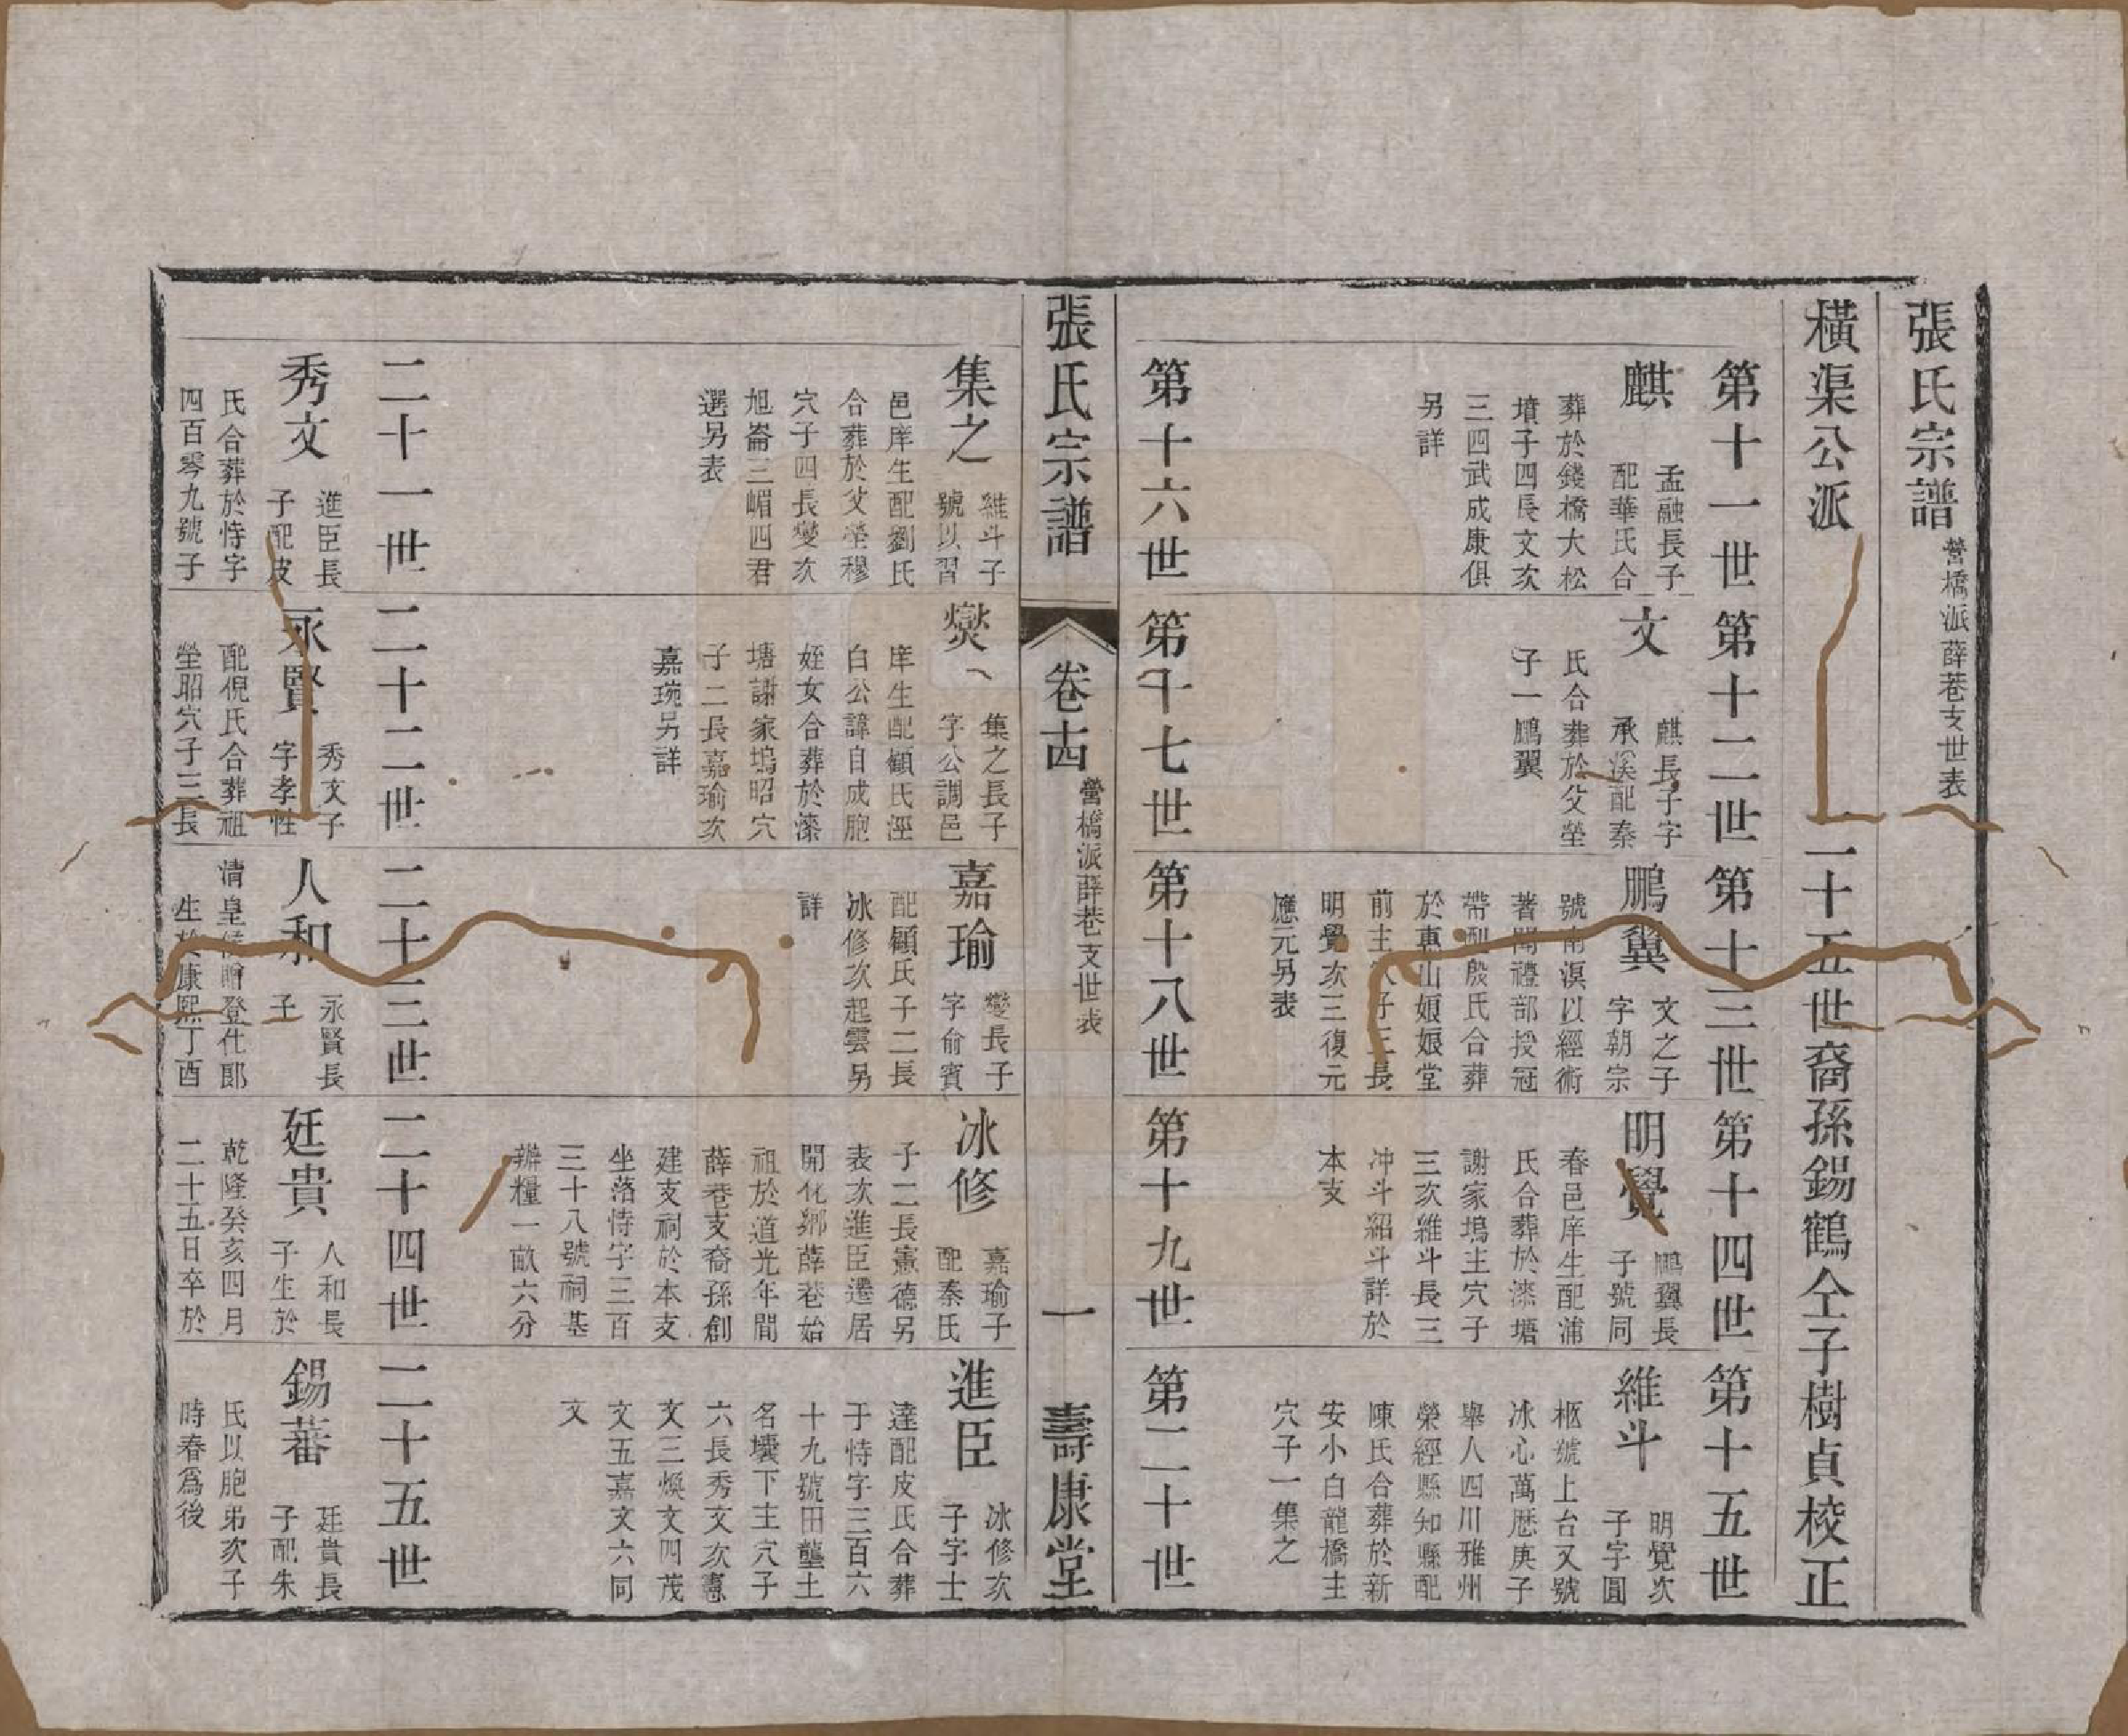 張氏宗譜 營橋派薛巷支世表
橫渠公派 二十五世裔孫錫鶴仝子樹貞校正
第十一世 第十二世 第十三世 第十四世 第十五世
麒 孟融長子
配華氏合
葬於錢橋大松
墳子四長文次
三四武成康俱
另詳
文 麒長子字
承溪配秦
氏合葬於父塋
子一鵬翼
鵬翼 文之子
字朝宗
號南溟以經術
著聞禮部授冠
帶配殷氏合葬
於惠山娘娘堂
前主穴子三長
明覺次三復元
應元另表
明覺 鵬翼長
子號同
春邑庠生配浦
氏合葬於漆塘
謝家塢主穴子
三次維斗長三
冲斗紹斗詳於
本支
維斗 明覺次
子字圓
樞號上台又號
冰心萬歷庚子
舉人四川雅州
榮經縣知縣配
陳氏合葬於新
安小白龍橋主
穴子一集之
第十六世 第十七世 第十八世 第十九世 第二十世
張氏宗譜 卷十四 營橋派薛巷支世表 一 壽康堂
集之 維斗子
號以習
邑庠生配劉氏
合葬於父塋穆
穴子四長燮次
旭崙三嵋四君
選另表
燮 集之長子
字公調邑
庠生配顧氏涇
白公諱自成胞
姪女合葬於漆
塘謝家塢昭穴
子二長嘉瑜次
嘉琬另詳
嘉瑜 燮長子
字俞賓
配顧氏子二長
冰修次起雲另
詳
冰修 嘉瑜子
配秦氏
子二長憲德另
表次進臣遷居
開化鄉薛巷始
祖於道光年間
薛巷支裔孫創
建支祠於本支
坐落恃字三百
三十八號祠基
辦糧一畝六分
進臣 冰修次
子字士
達配皮氏合葬
于恃字三百六
十九號田壟土
名壊下主穴子
六長秀文次憲
文三煥文四茂
文五嘉文六同
文
二十一世 二十二世 二十三世 二十四世 二十五世
秀文 進臣長
子配皮
氏合葬於恃字
四百零九號子
永賢 秀文子
字孝性
配倪氏合葬祖
塋昭穴子三長
人和 永賢長
子
清皇 贈登仕郎
生於康熙丁酉
廷貴 人和長
子生於
乾隆癸亥四月
二十五日卒於
錫蕃 廷貴長
子配朱
氏以胞弟次子
時春為後